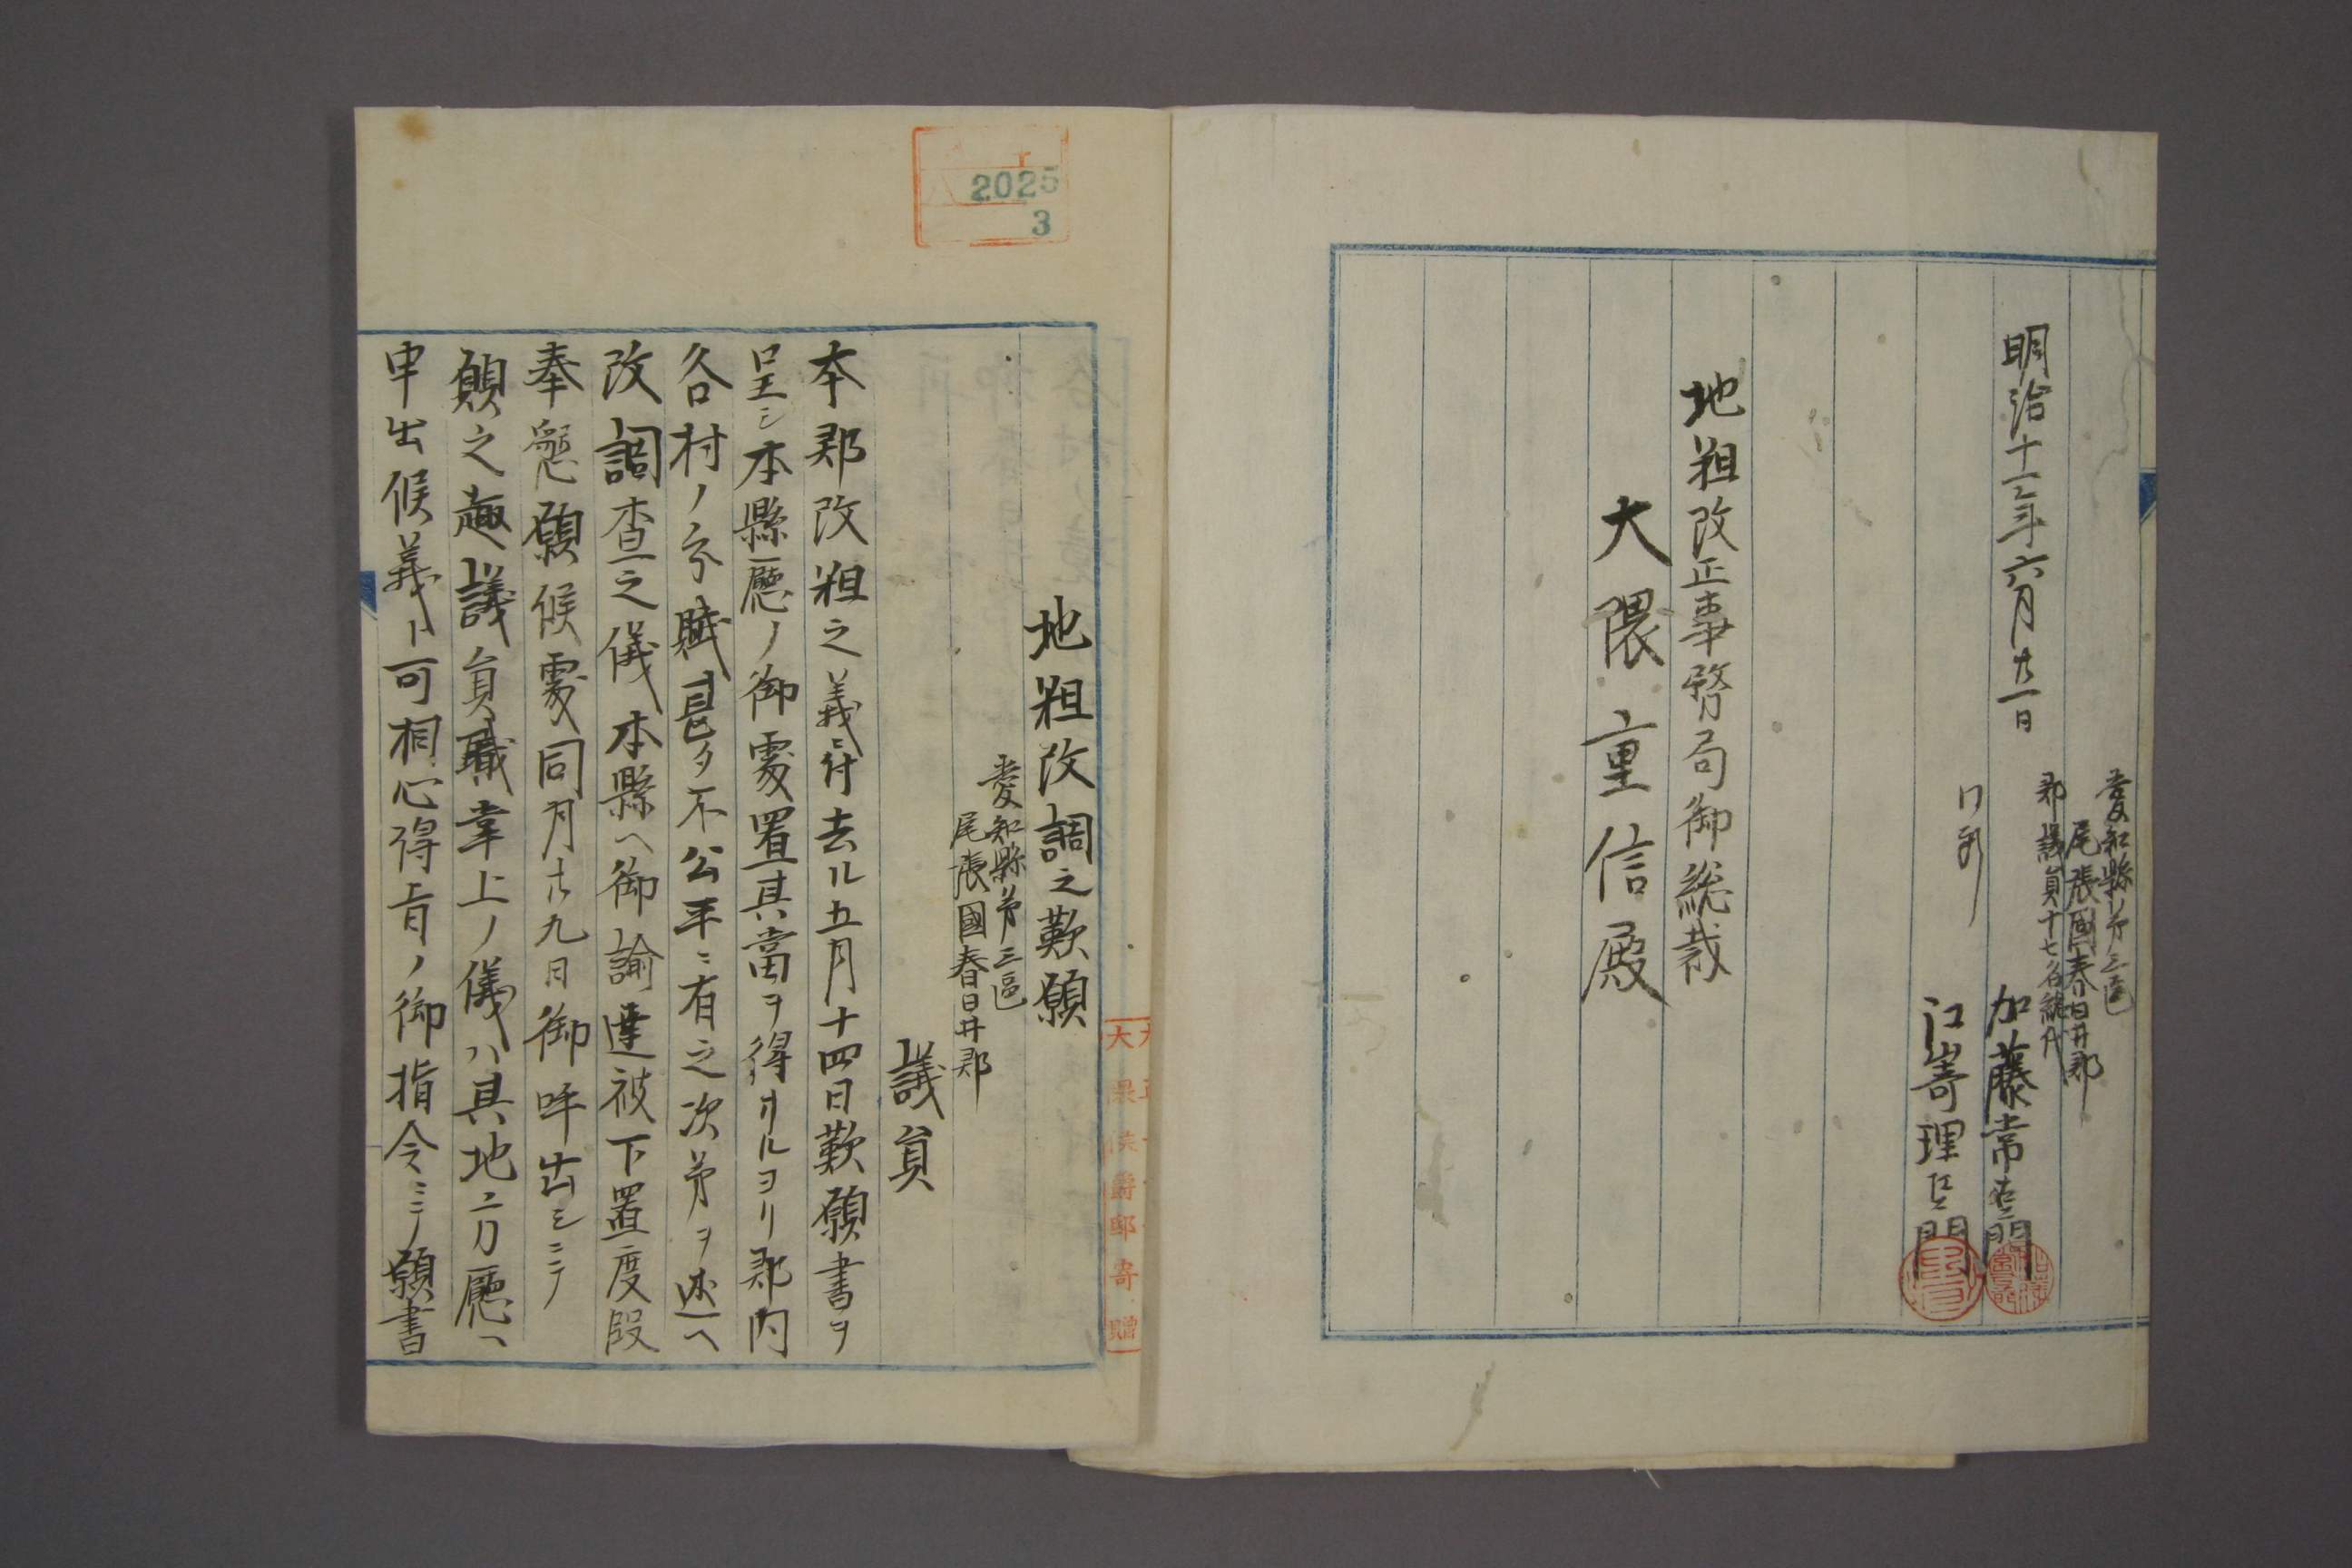 愛知縣第三區
尾張國春日井郡
郡議員十七名総代
明治十一年六月廿一日
加藤常左エ門
同断
江﨑理左エ門
地租改正事務局御総裁
大隈重信殿
2025
3
大隈侯爵邸寄贈
地租改調之歎願
愛知縣第三區
尾張國春日井郡
議員
本郡改租之義ニ付去ル五月十四日歎願書ヲ
呈シ本縣廳ノ御處置其當ヲ得サルヨリ郡内
各村ノ分賦甚タ不公平ニ有之次第ヲ述ヘ
改調査之儀本縣ヘ御諭達被下置度段
奉懇願候處同月廿九日御呼出シニテ
願之趣議員職掌上ノ儀ハ其地方廳ヘ
申出候義ト可相心得旨ノ御指令ニテ願書